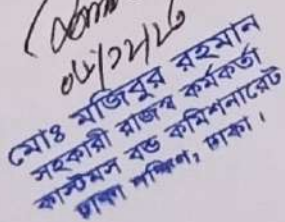 ০৮/১২/২০
মোঃ মজিবুর রহমান
সহকারী রাজস্ব কর্মকর্তা
কাস্টমস বন্ড কমিশনারেট
ঢাকা দক্ষিণ, ঢাকা।